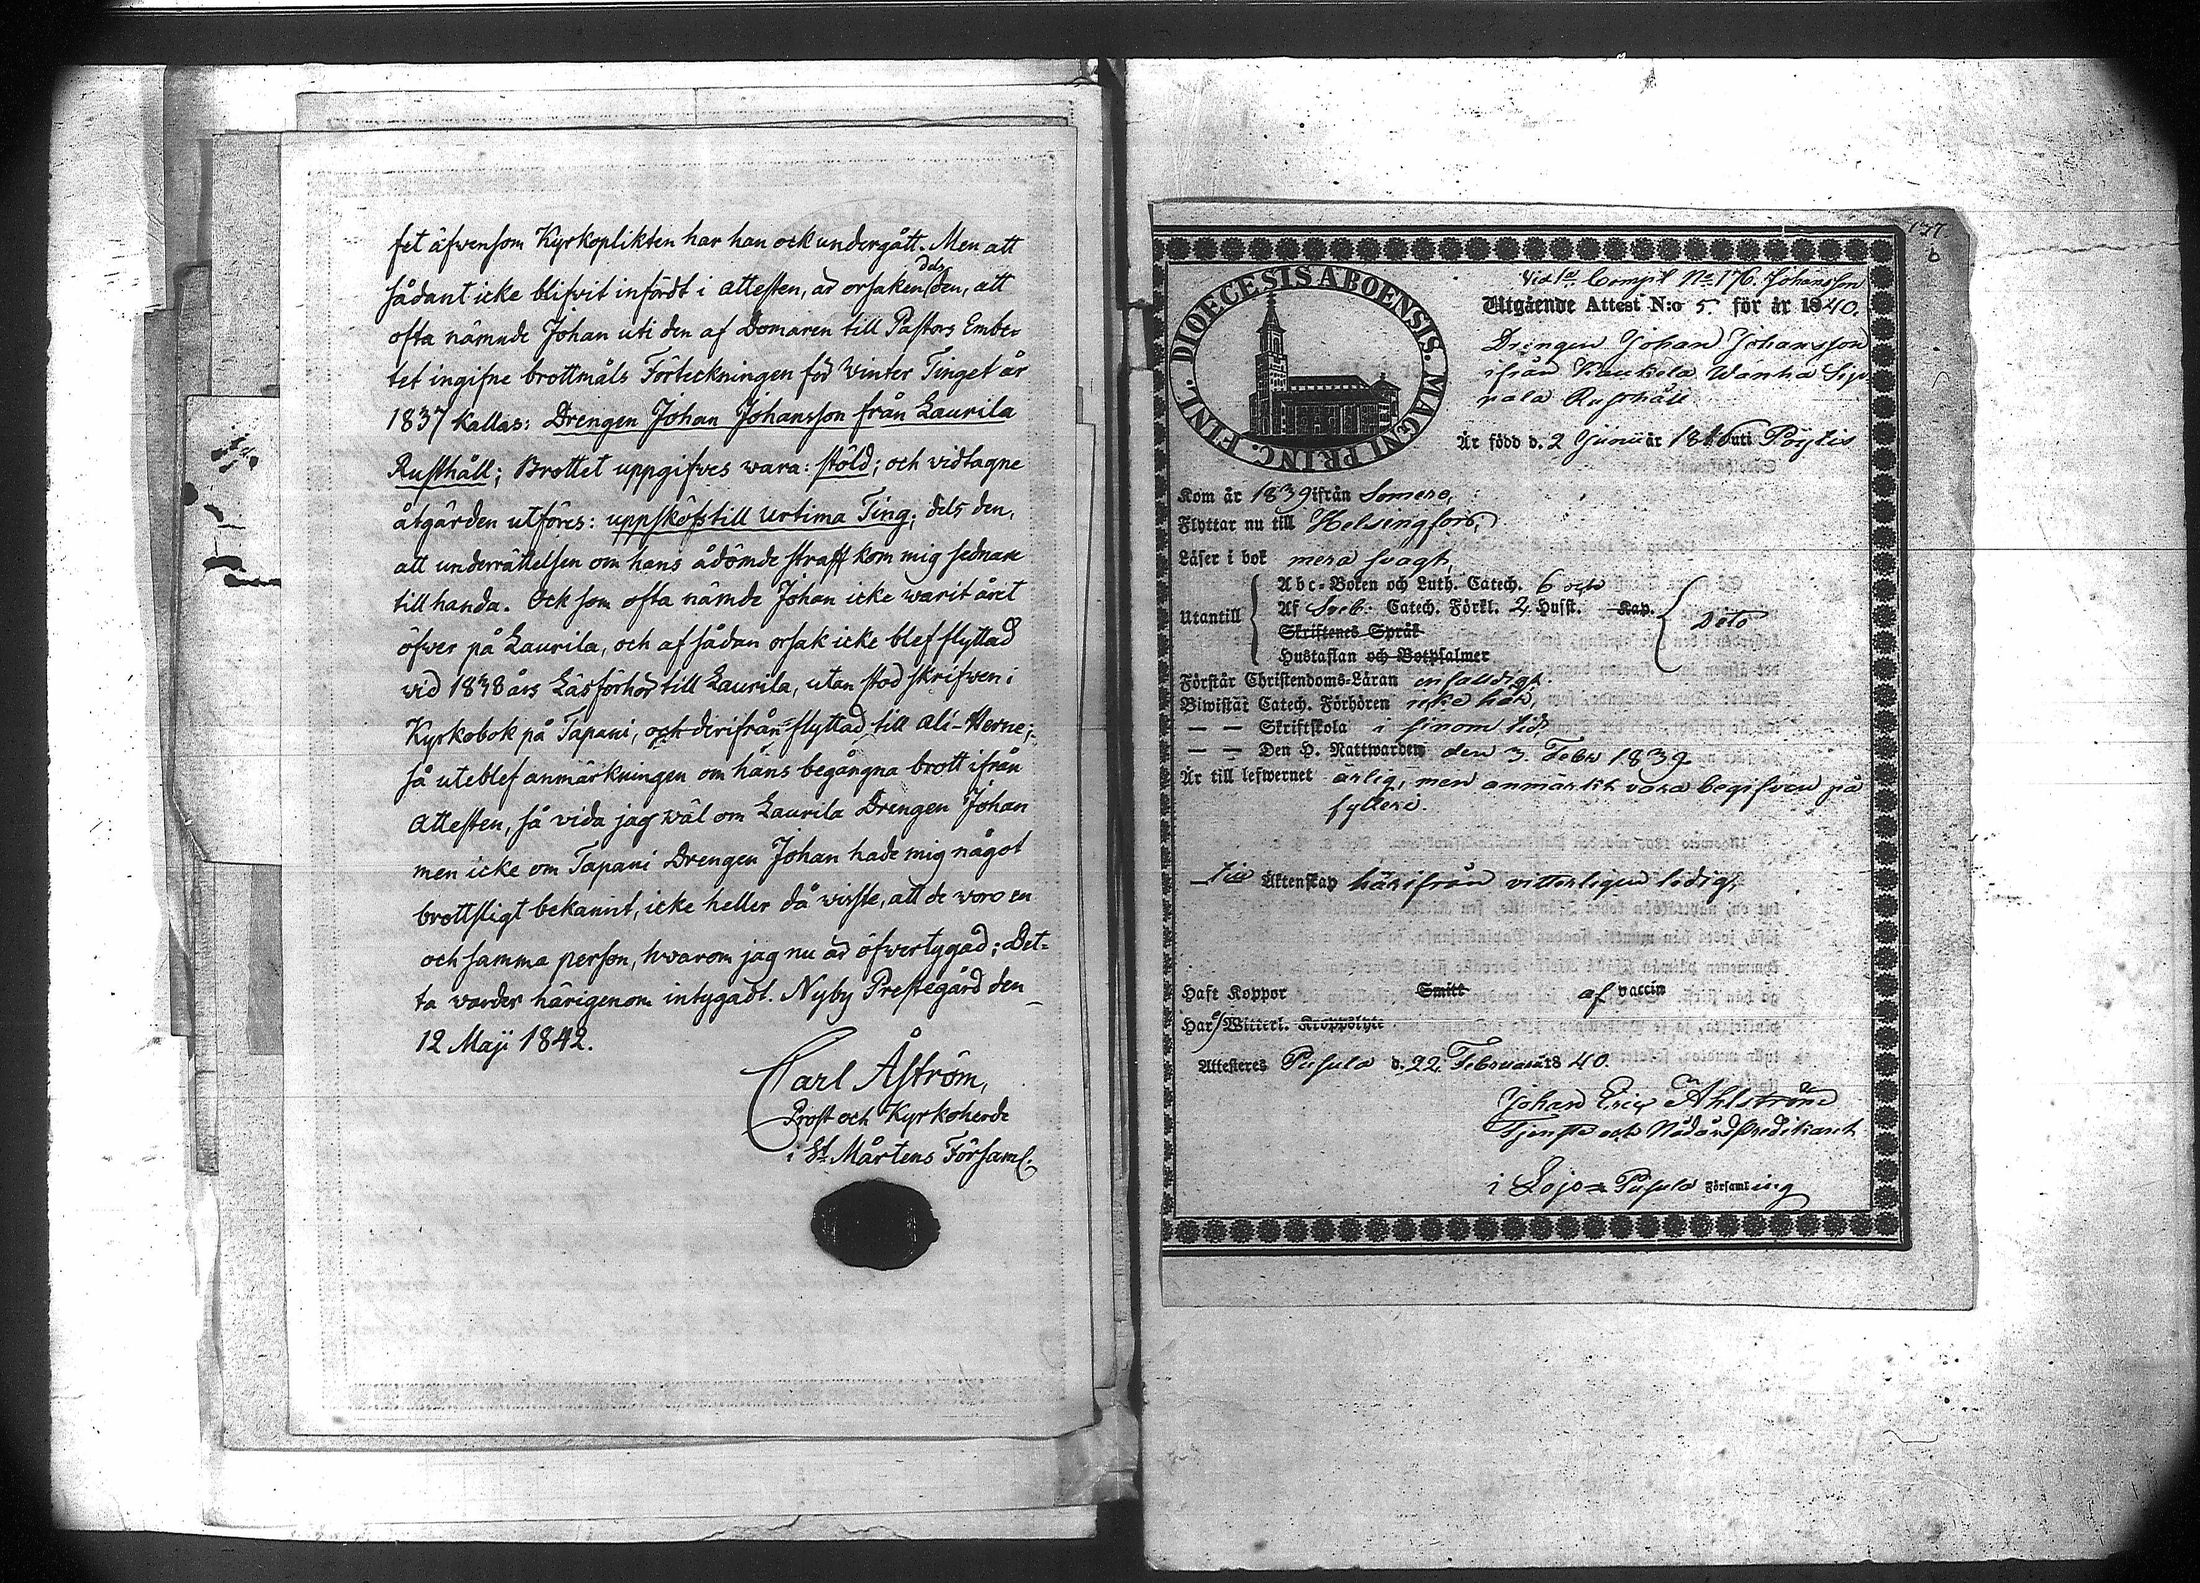 fet äfvensom Kyrkoplikten har han ock undergått. Men att
sådant icke blifvit infördt i attesten, är orsaken dels den, att
ofta nämnde Johan uti den af Domaren till Pastors Embe-
tet ingifne brottmåls Förteckningen för Winter Tinget år
1837 kallas: Drengen Johan Johansson från Laurila
Rusthåll; Brottet uppgifves wara: stöld; och vidtagne
åtgärden utföres: uppskofs till Urtima Ting; dels den,
att underrättelsen om hans ådömde straff kom mig sednare
till handa. Ock som ofta nämde Johan icke warit året
öfwer på Laurila, och af sådan orsak icke blef flyttad
wid 1838 års Läsförhör till Laurila, utan stod skrifwen i
Kyrkobok på Tapani, och derifrån flyttad till Ali-Herne;
så uteblef anmärkningen om hans begångna brott ifrån
Attesten, så vida jag wäl om Laurila Drengen Johan
men icke om Tapani Drengen Johan hade mig något
brottsligt bekannt, icke heller då wisste, att de woro en
och samma person, hwarom jag nu är öfwertygad; Det-
ta warder härigenom intygadt. Nyby Prestegård den
12 Maji 1842.
Carl Åström,
Prost och Kyrkoherde
i St Mårtens Församl.
177
b
Vid 1a Comp:t No 176. Johansson
Utgående Attest N:o 5. för år 1840.
Drengen Johan Johansson
ifrån Kaukela Wanha Sip-
pala Rusthåll
Är född d. 2 Junii år 1816 uti Pöytis
DIOECESIS ABOENSIS. MAGNI PRINC. FINL.
Kom år 1839 ifrån Somero,
Flyttar nu till Helsingfors,
Läser i bok mera svagt,
Abc-Boken och Luth. Catech. 6 och
Utantill Af Sveb. Catech. Förkl. 2 Husst. Kap. Deto
Skriftenes Språk
Hustaflan och Botpsalmer
Förstår Christendoms-Läran enfaldigt.
Biwistat Catech. Förhören icke här,
— — Skriftskola i sinom tid,
— — Den H. Nattwarden den 3. Febr 1839.
Är till lefwernet ärlig, men anmärkt vara begifven på
fylleri.
— till Äktenskap härifrån vitterligen ledig,
Haft Koppor Smitt af vaccin
Har Witterl. Kroppslyte
Attesteres Pusula d. 22 Februarii 1840.
Johan Eric Ahlström
Tjenste och Nådårs Predikant
i Lojo= Pusula Församling